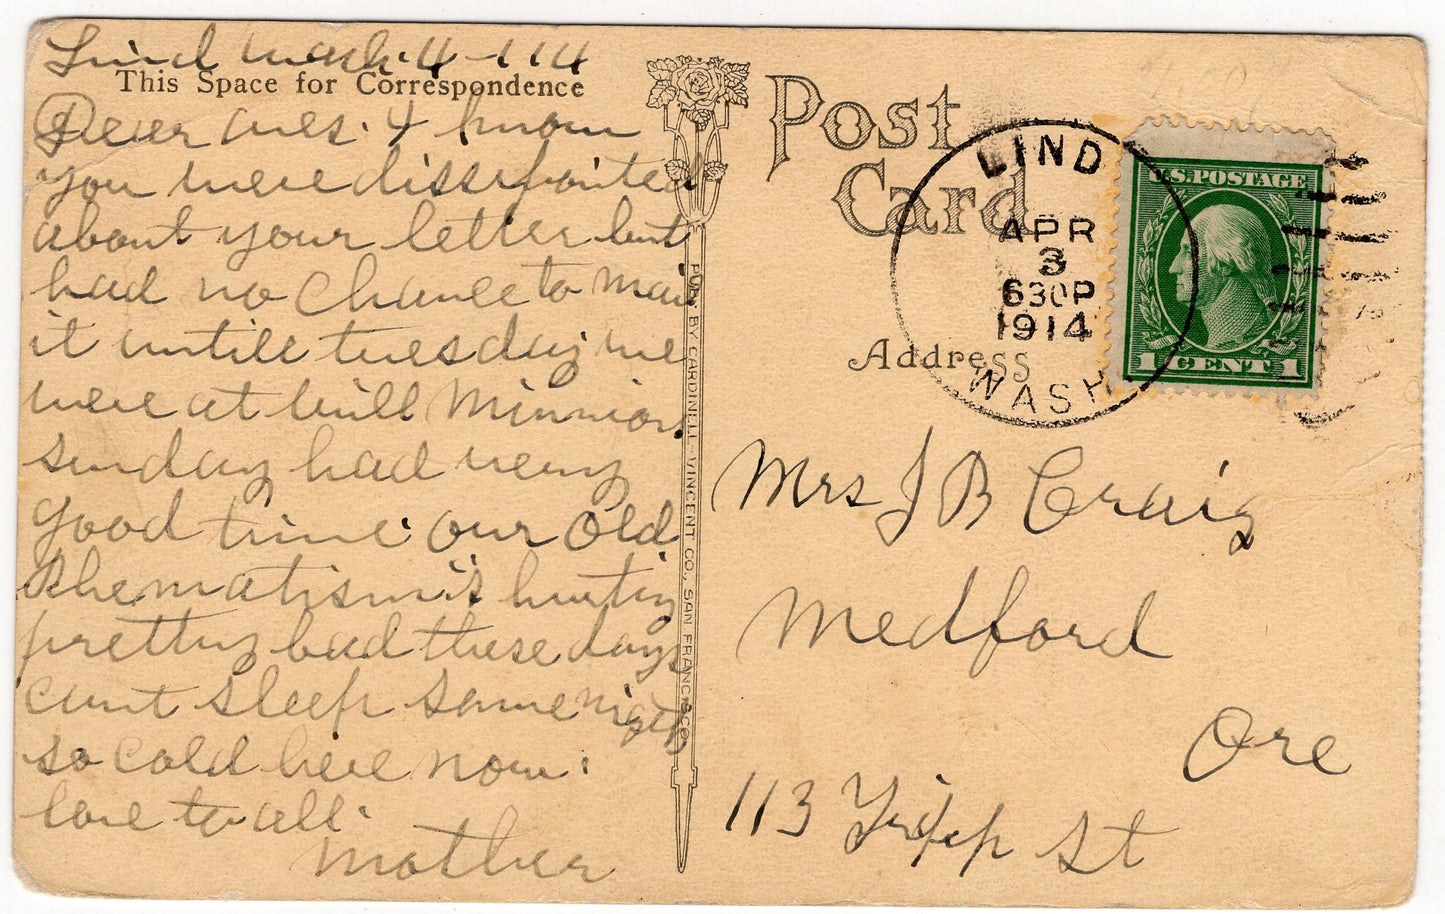 Lind Wash. 4-114
This Space for Correspondence
Dear ones. I know
you were dissipointed
about your letter but
had no chance to mail
it untill tuesday we
were at hill
sunday had very
good time. our old
Rhematism's hurting
pretty bad these days
cant sleep some nights
so cold here now.
love to all.
Mother
PUB. BY CARDINELL-VINCENT CO., SAN FRANCISCO
Post
Card
LIND
APR
3
630P
1914
WASH
U.S. POSTAGE
1 CENT 1
Address
Mrs J B Craig
Medford
Ore
113 Tripp St